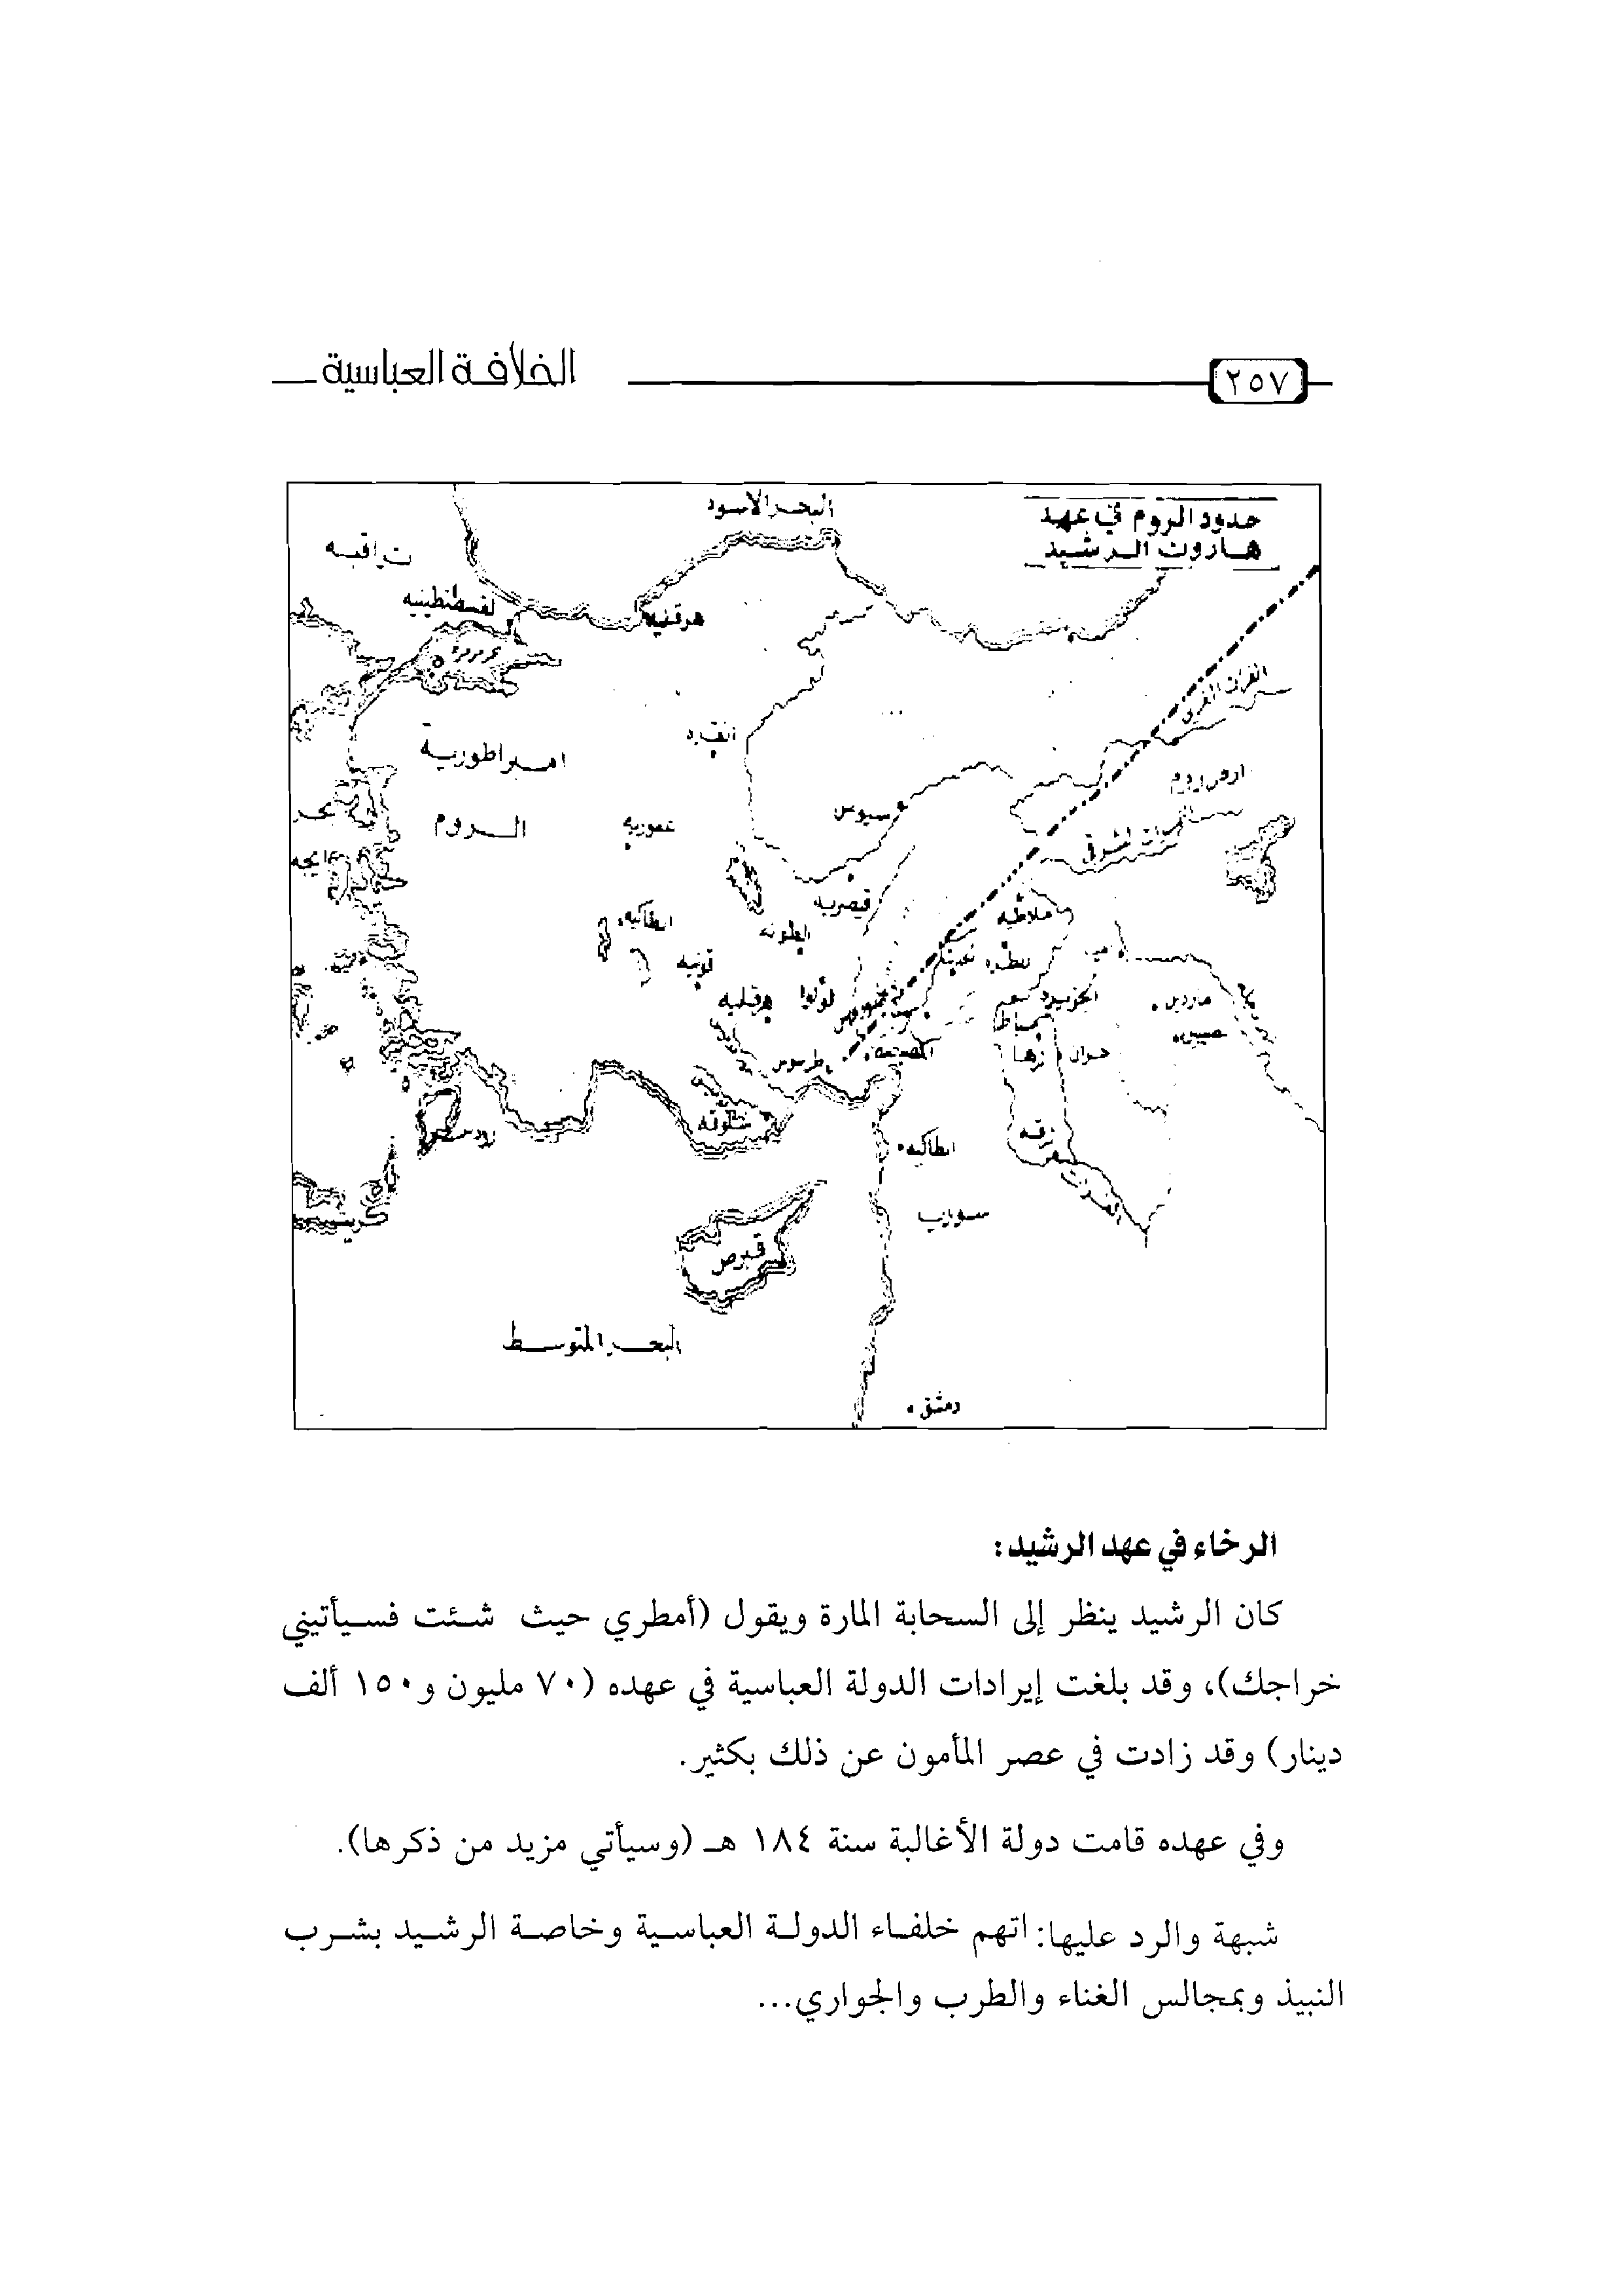 الخلافة العباسية
٢٥٧
حدود الروم في عهد
هارون الرشيد
البحر الأسود
هرقليه
امبراطورية
الروم
عموريه
سيوس
قيصريه
انطاكيه
قونيه
هرقليه
لؤلؤا
ملاطيه
الجزيرة
ماردين
حران
طرسوس
المصيصة
انطاكيه
قبرص
البحر المتوسط
دمشق
الرخاء في عهد الرشيد:
كان الرشيد ينظر إلى السحابة المارة ويقول (أمطري حيث شئت فسيأتيني
خراجك)، وقد بلغت إيرادات الدولة العباسية في عهده (٧٠ مليون و١٥٠ ألف
دينار) وقد زادت في عصر المأمون عن ذلك بكثير.
وفي عهده قامت دولة الأغالبة سنة ١٨٤ هـ (وسيأتي مزيد من ذكرها).
شبهة والرد عليها: اتهم خلفاء الدولة العباسية وخاصة الرشيد بشرب
النبيذ وبمجالس الغناء والطرب والجواري...